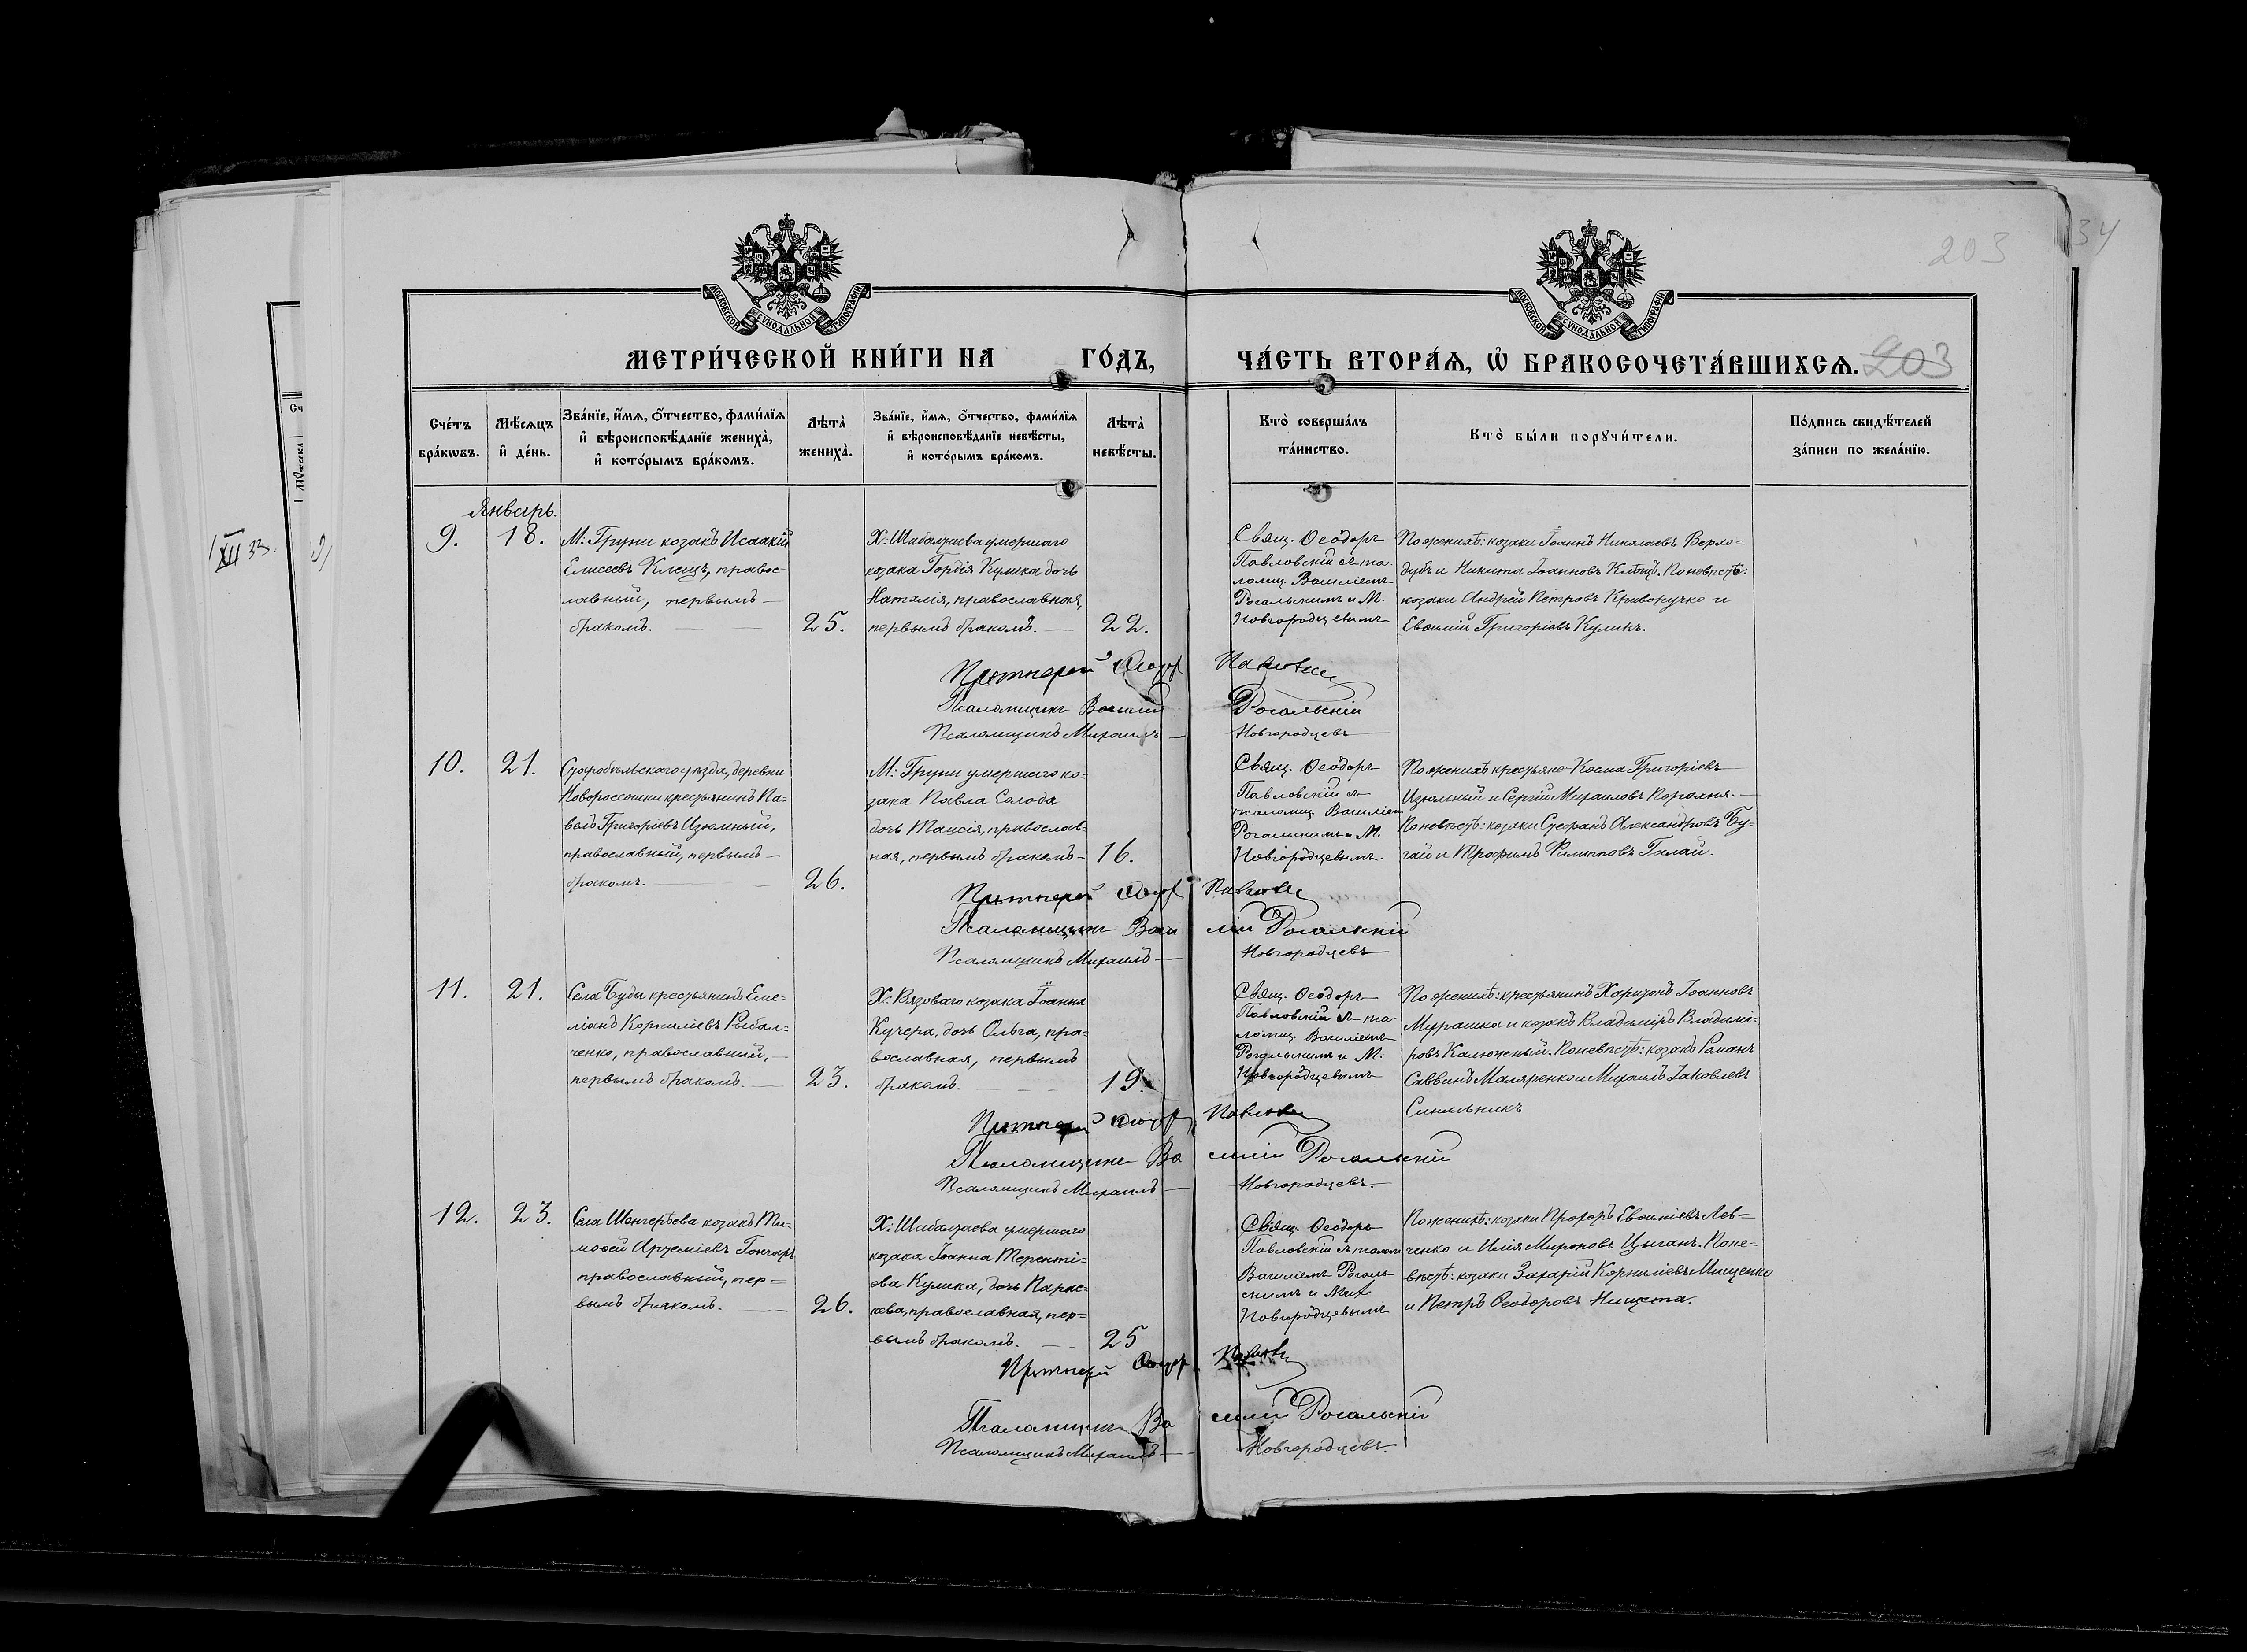 МОСКОВСКОЙ СѴНОДАЛЬНОЙ ТИПОГРАФІИ
МОСКОВСКОЙ СѴНОДАЛЬНОЙ ТИПОГРАФІИ
203
34
МЕТРИ́ЧЕСКОЙ КНИ́ГИ НА ГО́ДЪ,
ЧА́СТЬ ВТОРА́Ѧ, Ѡ҆ БРАКОСОЧЕТА́ВШИХСѦ.
203
Сче́тъ
бра́кѡвъ.
Мѣ́сѧцъ
и҆ де́нь.
Зва́нїе, и҆́мѧ, ѻ҆́тчество, фами́лїѧ
и҆ вѣроисповѣ́данїе жениха̀,
и҆ кото́рымъ бра́комъ.
Лѣта̀
жениха̀.
Зва́нїе, и҆́мѧ, ѻ҆́тчество, фами́лїѧ
и҆ вѣроисповѣ́данїе невѣ́сты,
и҆ кото́рымъ бра́комъ.
Лѣта̀
невѣ́сты.
Кто̀ соверша́лъ
та́инство.
Кто̀ бы́ли порꙋчи́тели.
По́дпись свидѣ́телей
за́писи по жела́нїю.
XII
Январь.
9.
18.
М: Груни козакъ Исаакій
Елисеевъ Клещъ, правос-
лавный, первымъ
бракомъ.
25.
Х: Шабалаева умершаго
козака Гордія Кулика дочь
Наталія, православная,
первымъ бракомъ.
22.
Свящ. Ѳеодоръ
Павловскій съ пса-
ломщ. Василіемъ
Рогальскимъ и М.
Новгородцевымъ
По женихѣ: козаки Іоаннъ Николаевъ Верло-
дубъ и Никита Іоанновъ Клещъ. По невѣстѣ:
козаки Андрей Петровъ Криворучко и
Евѳимій Григоріевъ Куликъ.
Протіерей Ѳеодор Павловскі
Псаломщикъ Василій Рогальскій
Псаломщикъ Михаилъ Новгородцевъ
10.
21.
Старобѣльскаго уѣзда, деревни
Новороссошки крестьянинъ Па-
велъ Григоріевъ Изюмный,
православный, первымъ
бракомъ.
26.
М: Груни умершаго ко-
зака Павла Солода
дочь Таисія, православ-
ная, первымъ бракомъ
16.
Свящ. Ѳеодоръ
Павловскій съ
псаломщ. Василіем
Рогальскимъ и М.
Новгородцевымъ.
По женихѣ крестьяне Косма Григоріевъ
Изюмный и Сергій Михаиловъ
По невѣстѣ: козаки Стефанъ Александровъ Бу-
гай и Трофимъ Филипповъ Галай.
Протіерей Ѳеодор Павловскі
Псаломщикъ Василій Рогальскій
Псаломщикъ Михаилъ Новгородцевъ
11.
21.
Села Буды крестьянинъ Еме-
ліанъ Корниліевъ Рыбал-
ченко, православный,
первымъ бракомъ.
23.
Х: Вязоваго козака Іоанна
Кучера, дочь Ольга, пра-
вославная, первымъ
бракомъ.
19
Свящ. Ѳеодоръ
Павловскій съ пса-
ломщ. Василіемъ
Рогальскимъ и М.
Новгородцевымъ
По женихѣ: крестьянинъ Харитонъ Іоанновъ
Мурашка и козакъ Владиміръ Владимі-
ровъ Калюжный. По невѣстѣ: козакъ Романъ
Саввинъ Маляренко и Михаилъ Іаковлевъ
Синяльникъ
Протіерей Ѳеодор Павловскі
Псаломщикъ Василій Рогальскій
Псаломщикъ Михаилъ Новгородцевъ.
12.
23.
Села Шенгерѣева козакъ Ти-
моѳей Артеміевъ Гончаръ
православный, пер-
вымъ бракомъ.
26.
Х: Шабалтаева умершаго
козака Іоанна Теренті-
ева Кулика, дочь Парас-
кева, православная, пер-
вымъ бракомъ.
25
Свящ. Ѳеодоръ
Павловскій съ псалом
Василіемъ Рогаль-
скимъ и Мих.
Новгородцевымъ
По женихѣ: козаки Прохоръ Евѳиміевъ Лев-
ченко и Илія Мироновъ Цыганъ. По не-
вѣстѣ: козаки Захарій Корниліевъ Мищенко
и Петръ Ѳеодоровъ Нищета.
Протіерей Ѳеодор Павловскі
Псаломщикъ Василій Рогальскій
Псаломщикъ Михаилъ Новгородцевъ.